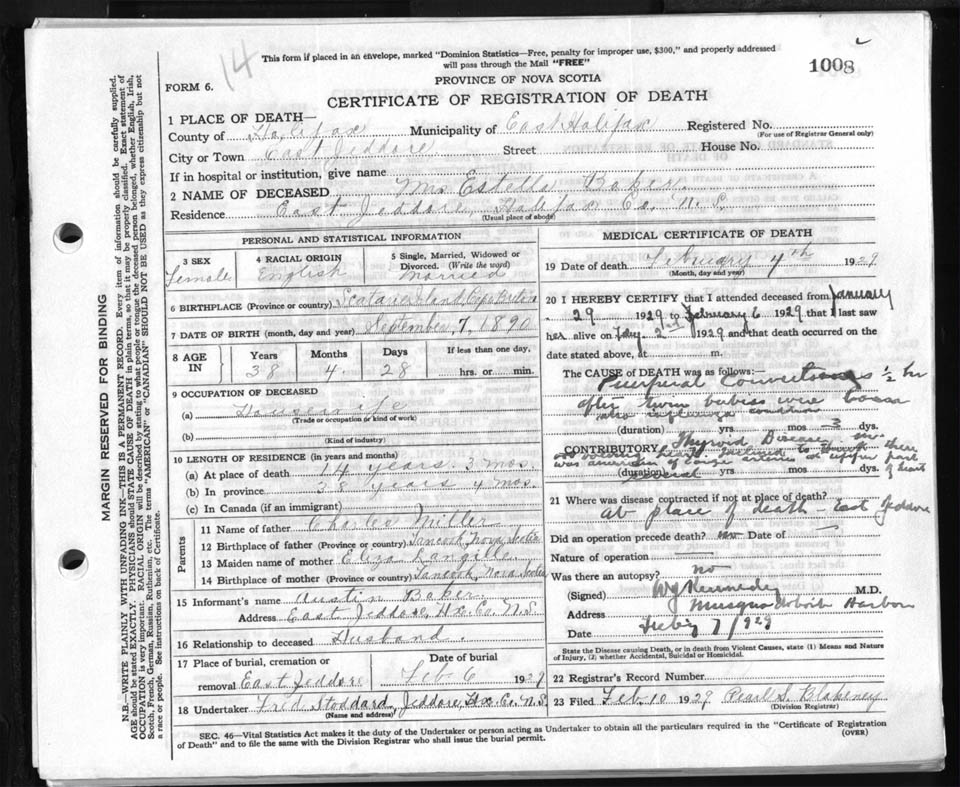 14
This form if placed in an envelope, marked "Dominion Statistics—Free, penalty for improper use, $300," and properly addressed
will pass through the Mail "FREE"
1008
FORM 6.
PROVINCE OF NOVA SCOTIA
CERTIFICATE OF REGISTRATION OF DEATH
1 PLACE OF DEATH—
County of Halifax Municipality of East Halifax Registered No.
(For use of Registrar General only)
City or Town East Jeddore Street House No.
If in hospital or institution, give name
2 NAME OF DECEASED Mrs Estella Baker
Residence East Jeddore, Halifax Co. N. S.
(Usual place of abode)
PERSONAL AND STATISTICAL INFORMATION
3 SEX Female
4 RACIAL ORIGIN English
5 Single, Married, Widowed or
Divorced. (Write the word) Married
6 BIRTHPLACE (Province or country) Scatarie Island, Cape Breton
7 DATE OF BIRTH (month, day and year) September, 7, 1890
8 AGE IN Years 38 Months 4 Days 28
If less than one day,
hrs. or min.
9 OCCUPATION OF DECEASED
(a) Housewife
(Trade or occupation or kind of work)
(b)
(Kind of industry)
10 LENGTH OF RESIDENCE (in years and months)
(a) At place of death 14 years. 3 mos.
(b) In province 38 years 4 mos.
(c) In Canada (if an immigrant)
Parents
11 Name of father Charles Miller
12 Birthplace of father (Province or country) Tancook, Nova Scotia
13 Maiden name of mother Eliza Langille
14 Birthplace of mother (Province or country) Tancook, Nova Scotia
15 Informant's name Austin Baker
Address East Jeddore, Hx. Co. N. S.
16 Relationship to deceased Husband.
17 Place of burial, cremation or
removal East Jeddore
Date of burial
Feb 6 1929
18 Undertaker Fred Stoddard, Jeddore, Hx. Co. N. S.
(Name and address)
MEDICAL CERTIFICATE OF DEATH
19 Date of death February 4th 1929
(Month, day and year)
20 I HEREBY CERTIFY that I attended deceased from January
29 1929 to February 6 1929 that I last saw
her alive on 1929 and that death occurred on the
date stated above, at m.
The CAUSE OF DEATH was as follows:—
Puerperal Convulsions ½ hr
after twin babies were born
(duration) yrs. mos. 3 dys.
CONTRIBUTORY Thyroid Disease
(duration) yrs. mos. dys.
21 Where was disease contracted if not at place of death?
At place of death — East Jeddore
Did an operation precede death? no Date of
Nature of operation
Was there an autopsy? no
(Signed) W J Kennedy M.D.
Address Musquodoboit Harbor
Date Feby 7/1929
State the Disease causing Death, or in death from Violent Causes, state (1) Means and Nature
of Injury, (2) whether Accidental, Suicidal or Homicidal.
22 Registrar's Record Number
23 Filed Feb. 10 1929 Pearl S. Blakeney
(Division Registrar)
SEC. 46—Vital Statistics Act makes it the duty of the Undertaker or person acting as Undertaker to obtain all the particulars required in the "Certificate of Registration
of Death" and to file the same with the Division Registrar who shall issue the burial permit.
(OVER)
MARGIN RESERVED FOR BINDING
N.B.—WRITE PLAINLY WITH UNFADING INK—THIS IS A PERMANENT RECORD. Every item of information should be carefully supplied.
AGE should be stated EXACTLY. PHYSICIANS should STATE CAUSE OF DEATH in plain terms, so that it may be properly classified. Exact statement of
OCCUPATION is very important. RACIAL ORIGIN will be described by stating to what people or tongue the deceased person belonged, whether English, Irish,
Scotch, French, German, Russian, Ruthenian, etc. The terms "AMERICAN" or "CANADIAN" SHOULD NOT BE USED as they express citizenship but not
a race or people. See instructions on back of Certificate.